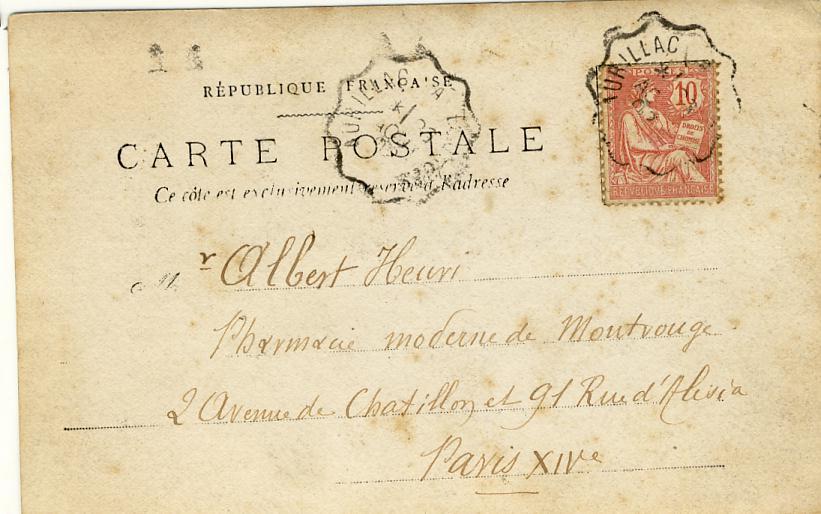 RÉPUBLIQUE FRANÇAISE
CARTE POSTALE
Ce côté est exclusivement réservé à l'adresse
AURILLAC A
AURILLAC
POSTES
10
DROITS DE L'HOMME
REPUBLIQUE FRANÇAISE
M. r Albert Henri
Pharmacie moderne de Montrouge
2 Avenue de Chatillon et 91 Rue d'Alésia
Paris XIVe